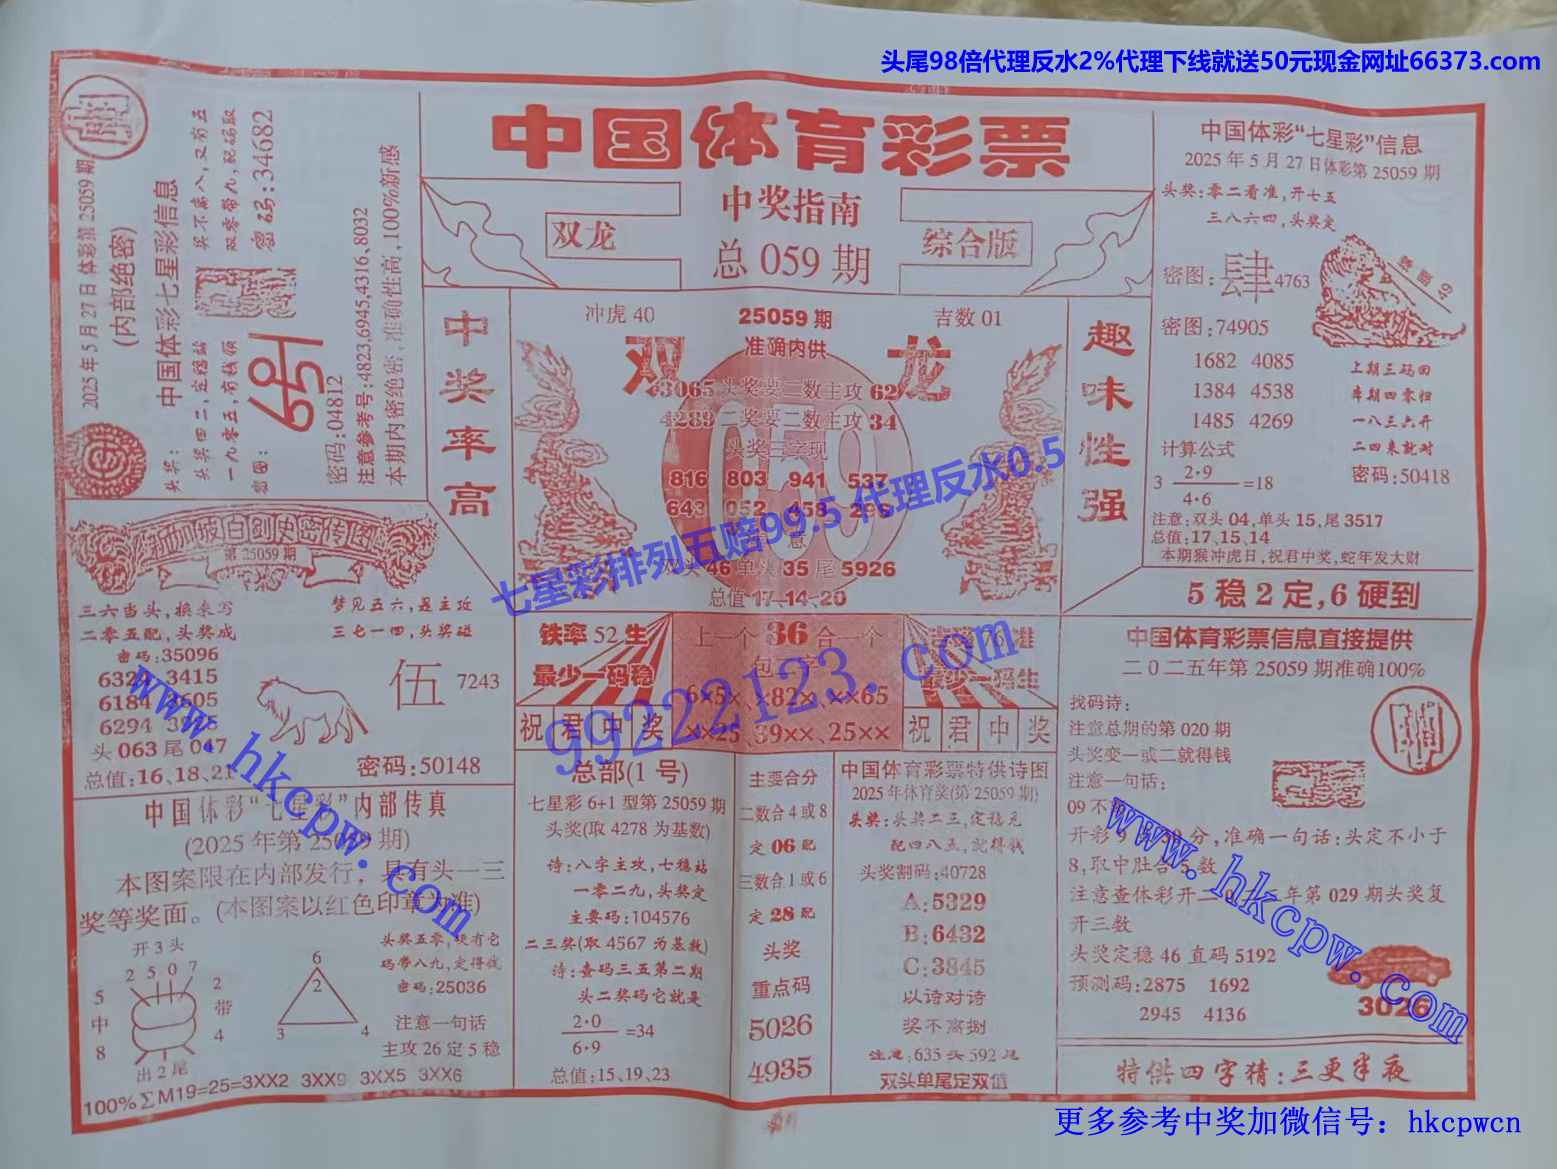 头尾98倍代理反水2%代理下线就送50元现金网址66373.com
中国体育彩票
中奖指南
双龙
综合版
总 059 期
2025年5月27日体彩第25059期
(内部绝密)
中国体彩七星彩信息
头奖:
奖不离八,又有五
头奖四二,定稳站
双零带九,配码取
一九零五,有钱领
密码:34682
密图:
密码:04812
注意参考号:4823,6945,4316,8032
本期内密绝密,准确性高,100%新感
中奖率高
冲虎 40
25059 期
吉数 01
准确内供
双
龙
63065头奖要二数主攻62
4289二奖要二数主攻34
816 803 941 537
双头46单头35尾5926
总值17、14、20
趣味性强
中国体彩“七星彩”信息
2025年5月27日体彩第25059期
头奖:零二看准,开七五
三八六四,头奖定
密图:
肆
4763
密图:74905
1682 4085
1384 4538
1485 4269
上期三码回
本期四零归
一八三六开
二四来就对
密码:50418
计算公式
3 2·9/4·6 =18
注意:双头04,单头15,尾3517
总值:17、15、14
本期猴冲虎日,祝君中奖,蛇年发大财
5稳2定,6硬到
新加坡白剑史密传图
第 25059 期
三六当头,换来写
二零五配,头奖成
密码:35096
梦见五六,是主攻
三七一四,头奖碰
6329 3415
头063尾047
总值:16、18、21
伍
7243
密码:50148
铁率52生
最少一码稳
上一个36合一个
6×5×、×82×、××65
××25、39××、25××
祝君中奖
祝君中奖
中国体育彩票信息直接提供
二0二五年第25059期准确100%
找码诗:
注意总期的第020期
头奖变一或二就得钱
注意一句话:
开彩9
分,准确一句话:头定不小于
8,取中肚合5数
注意查体彩开二
年第029期头奖复
开三数
头奖定稳46直码5192
预测码:2875 1692
2945 4136
3026
特供四字猜:三更半夜
中国体彩“七星彩”内部传真
(2025年第25059期)
本图案限在内部发行,具有头一三
奖等奖面。(本图案以红色印章为准)
开3头
2 5 0 7
5
中
8
2
带
4
出2尾
6
2
3
4
头奖五零,现有它
码带八九,定得钱
密码:25036
注意一句话
主攻26定5稳
100%∑M19=25=3XX2 3XX9 3XX5 3XX6
总部(1号)
七星彩6+1型第25059期
头奖(取4278为基数)
诗:八字主攻,七稳站
一零二九,头奖定
主要码:104576
二三奖(取4567为基数)
诗:查码三五第二期
头二奖码它就是
2·0/6·9 =34
总值:15、19、23
主要合分
二数合4或8
定06配
三数合1或6
定28配
头奖
重点码
5026
4935
中国体育彩票特供诗图
2025年体育奖(第25059期)
头奖:头奖二三,定稳见
配四八五,就得钱
头奖割码:40728
A:5329
B:6432
C:3845
以诗对诗
奖不离捌
注意:635头592尾
双头单尾定双值
七星彩排列五赔99.5 代理反水0.5
99222123.com
www.hkcpw.com
www.hkcpw.com
更多参考中奖加微信号：hkcpwcn